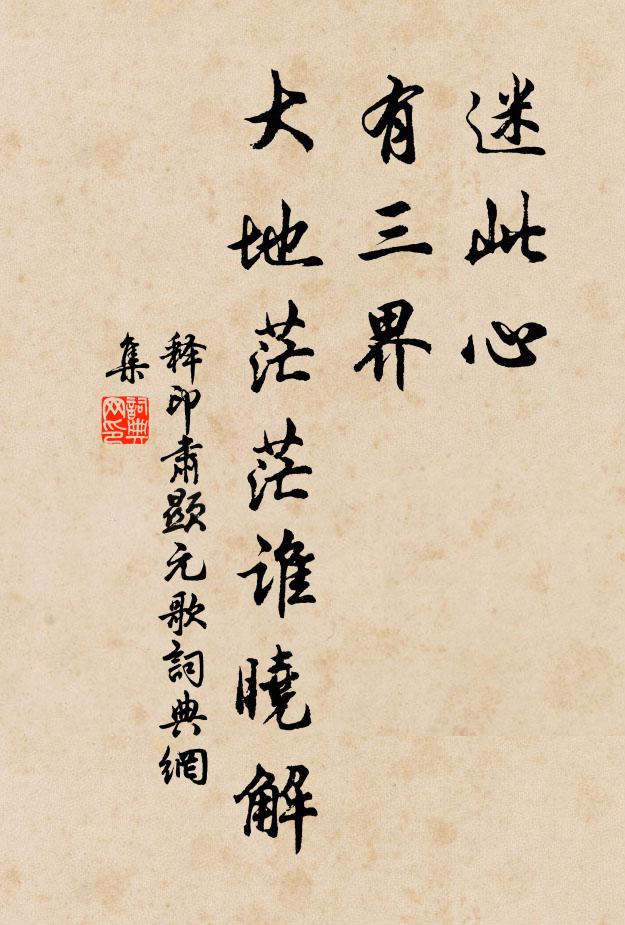 迷此心
有三界
大地茫茫谁曉解
释印肅顕元歌詞典網
集
詞典
网印